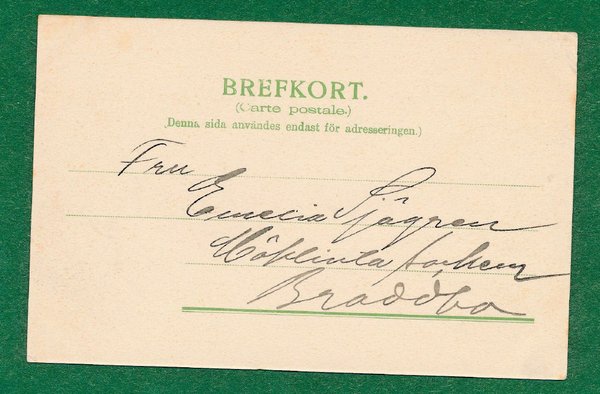 BREFKORT.
(Carte postale.)
(Denna sida användes endast för adresseringen.)
Fru
Emecia Sjögren
Möklinta
Braddbo